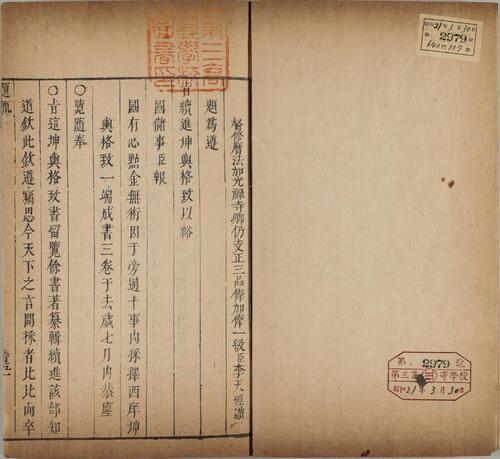 督修曆法加光祿寺卿仍支正三品俸加俸一級臣李天經謹
題爲遵
旨續進坤輿格致以裕
國儲事臣報
國有心點金無術因于旁通十事內採擇西庠坤
輿格致一端成書三卷于去歲七月內恭塵
○覽隨奉
○旨這坤輿格致書留覽餘書著纂輯續進該部知
道欽此欽遵竊思今天下之言開採者比比而卒
題
第三高
等學校
圖書印
昭和21年3月30日
2979
第 2979 號
第三高等學校
昭和21年3月30日